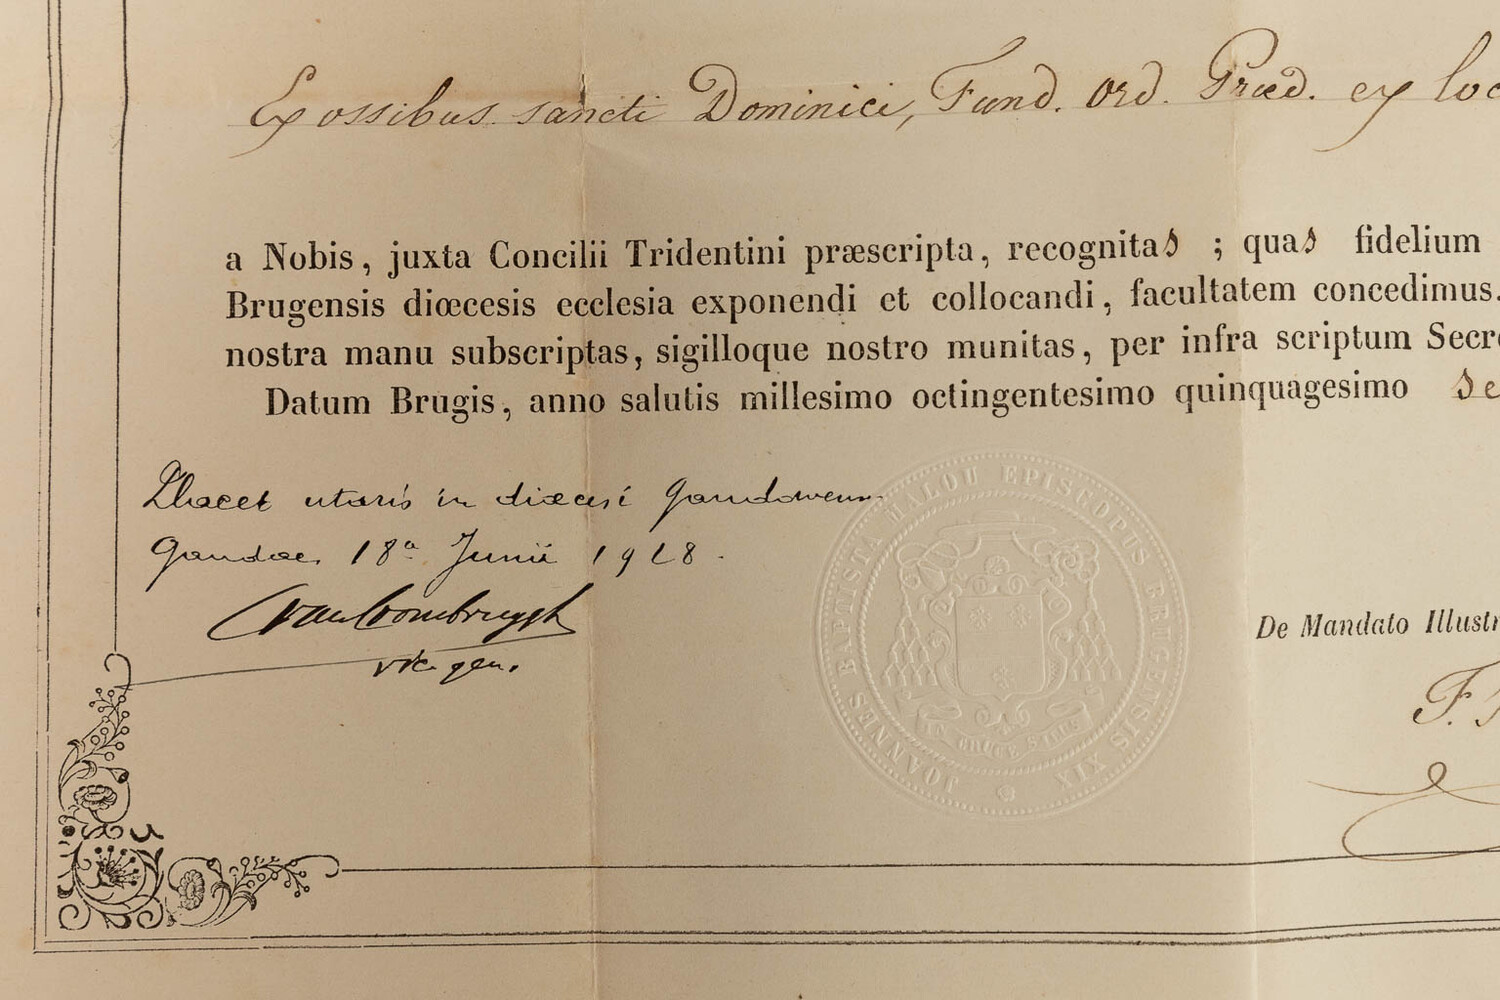 Ex ossibus sancti Dominici, Fund. Ord. Præd. ex loc
a Nobis, juxta Concilii Tridentini præscripta, recognitas ; quas fidelium
Brugensis diœcesis ecclesia exponendi et collocandi, facultatem concedimus.
nostra manu subscriptas, sigilloque nostro munitas, per infra scriptum Secre
Datum Brugis, anno salutis millesimo octingentesimo quinquagesimo se
Placet utaris in diœcesi Gandaven
Gandae, 18ª Junii 1928.
vic. gen.
JOANNES BAPTISTA MALOU EPISCOPUS BRUGENSIS XIX
IN CRUCE SALUS
De Mandato Illustr
F.